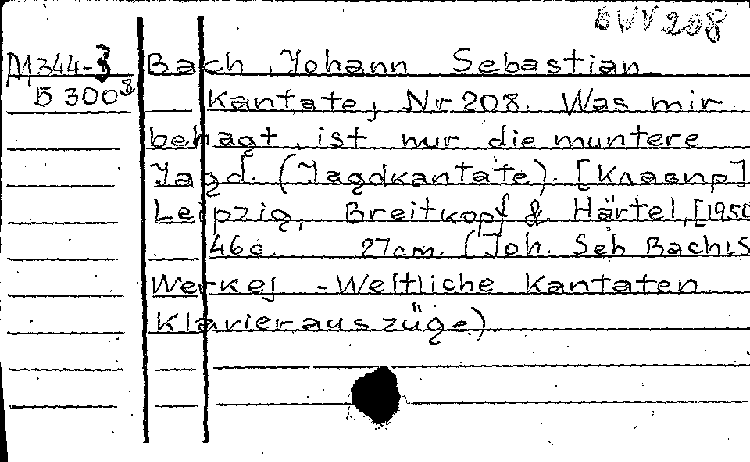 BVV 208
M344-3 Bach, Johann Sebastian
B 300 Kantate, Nr 208. Was mir
behagt, ist nur die muntere
Jagd. (Jagdkantate). [Клавир]
Leipzig, Breitkopf & Härtel, [1950
46 c. 27 cm. (Joh. Seb Bachis
Werke; - Weltliche Kantaten
Klavierauszüge)